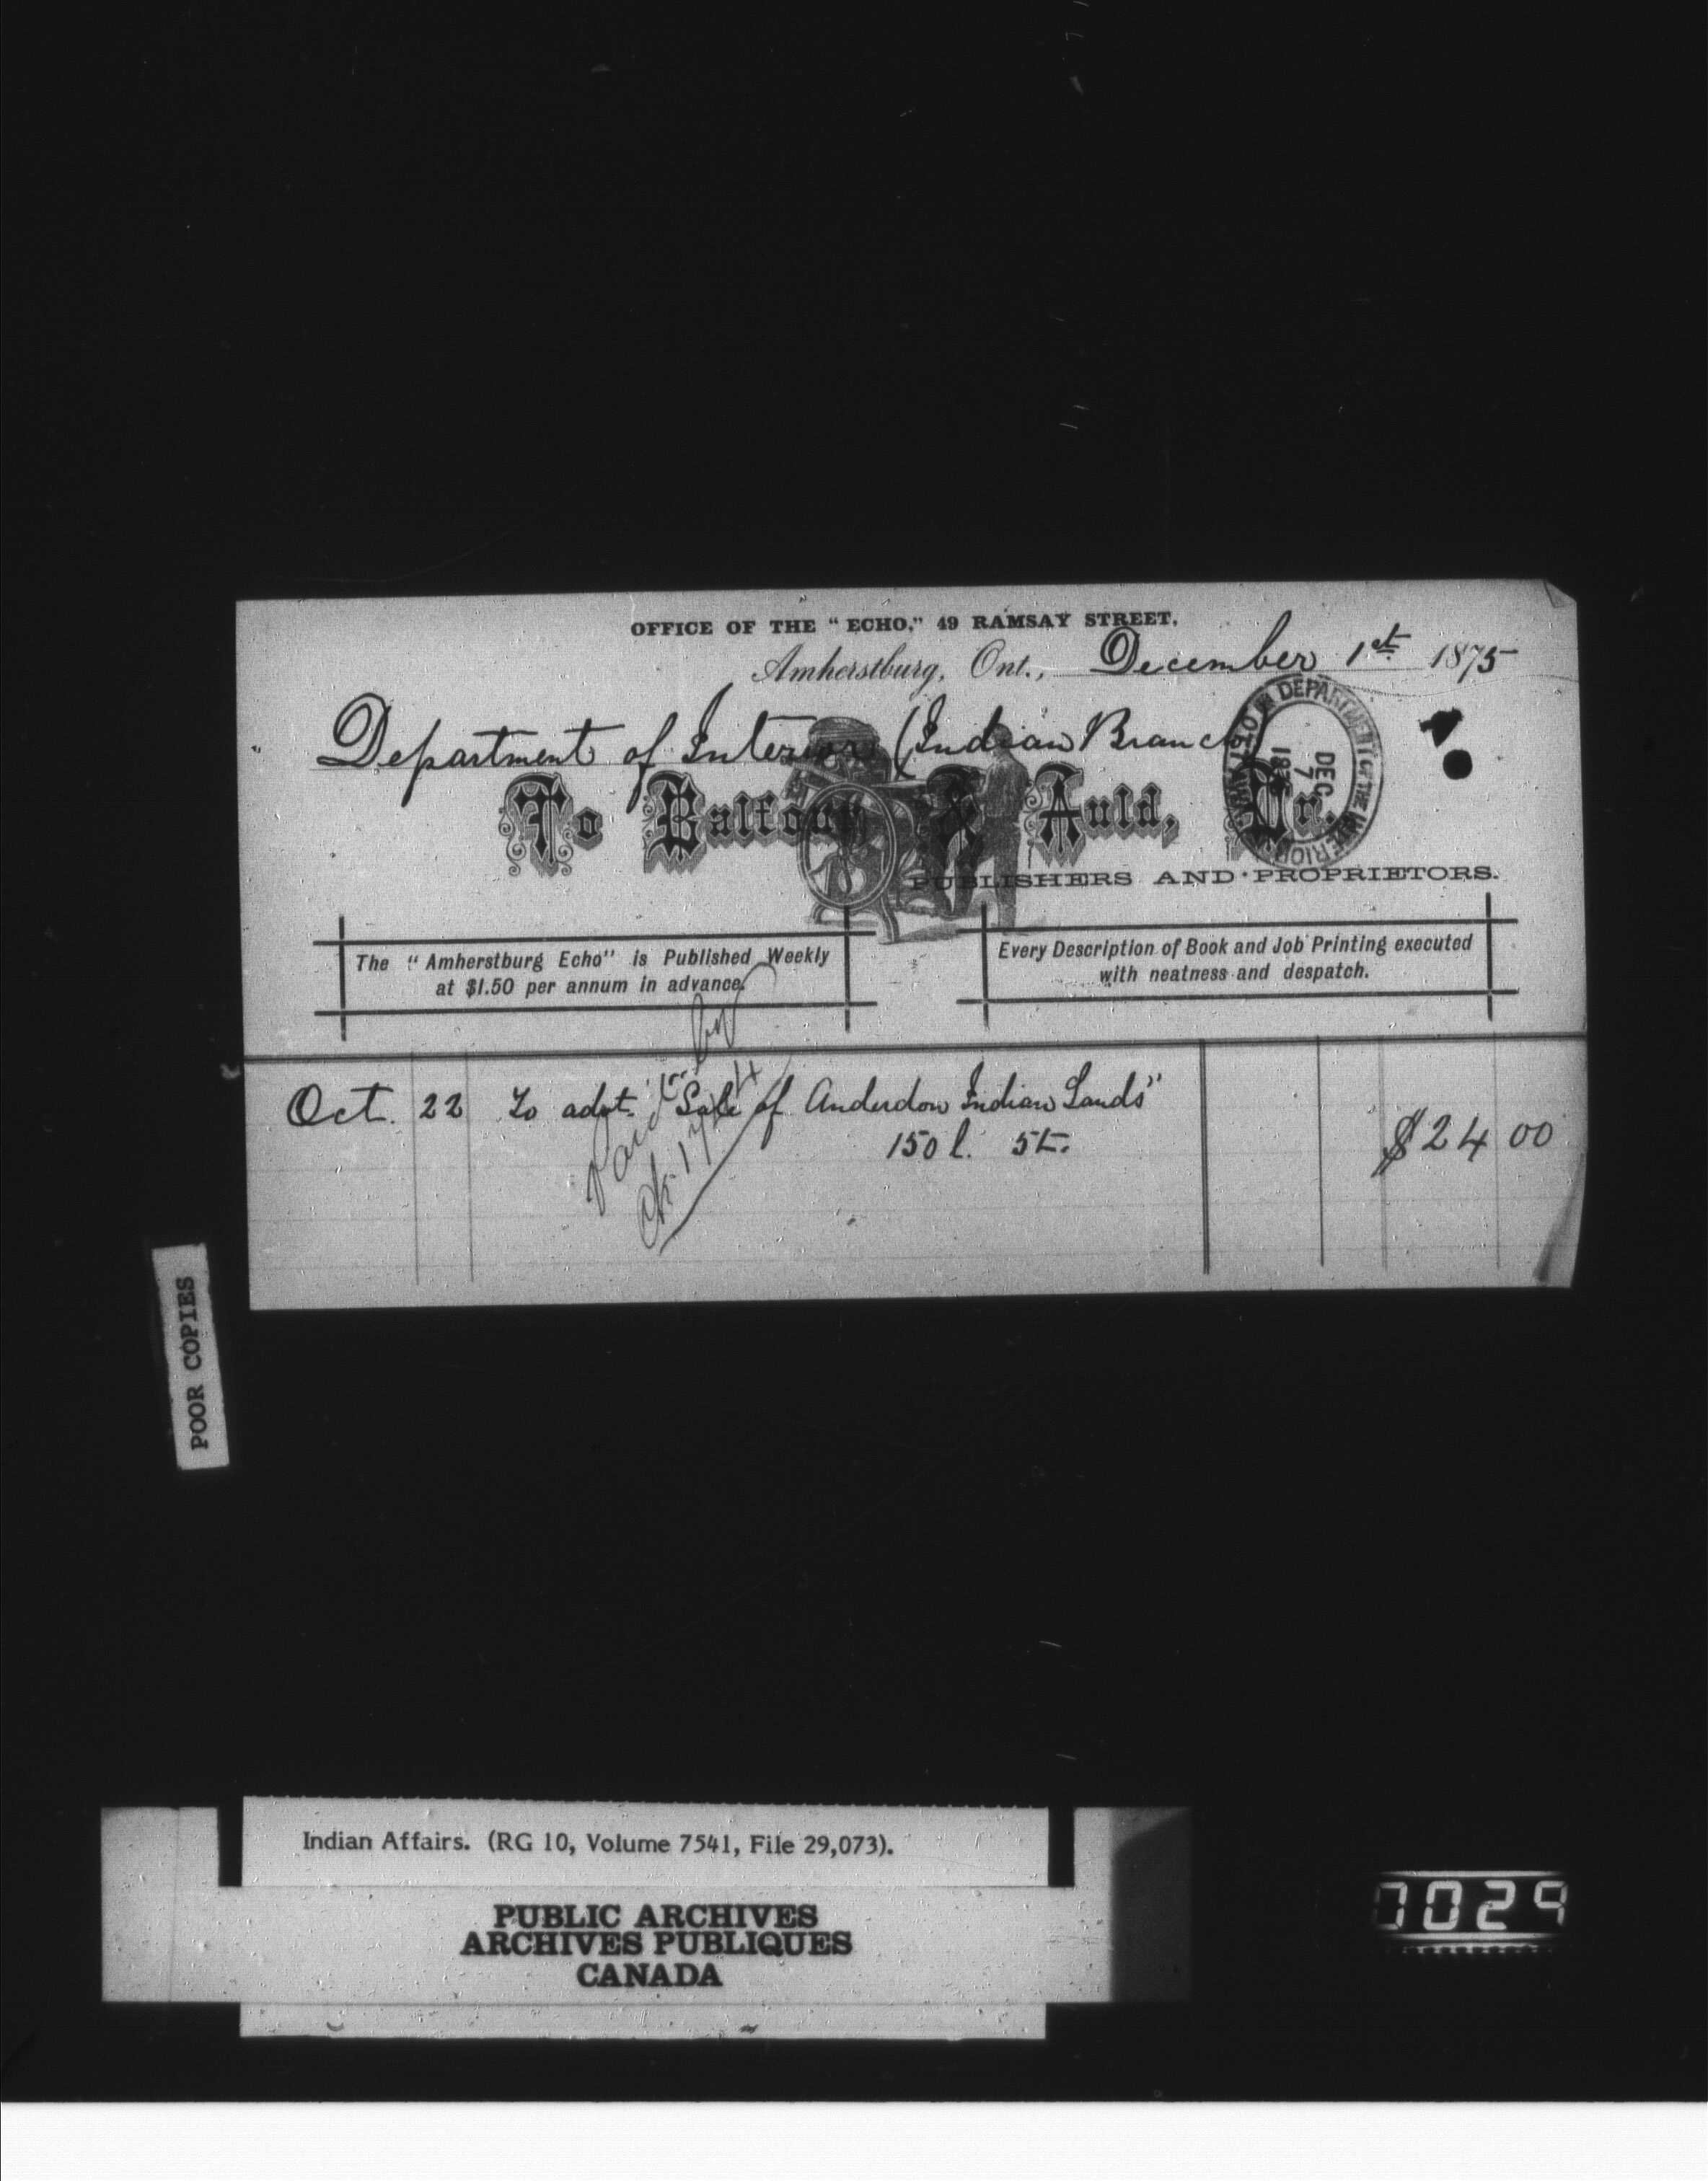 OFFICE OF THE "ECHO," 49 RAMSAY STREET,
Amherstburg, Ont., December 1st 1875
Department of Interior (Indian Branch)
To Balfour & Auld, Dr.
PUBLISHERS AND PROPRIETORS.
DEPARTMENT OF THE INTERIOR
DEC 7
The "Amherstburg Echo" is Published Weekly
at $1.50 per annum in advance.
Every Description of Book and Job Printing executed
with neatness and despatch.
Oct. 22 To advt. "Sale of Anderdon Indian Lands"
150 l. 5t. $24 00
Paid by
POOR COPIES
Indian Affairs. (RG 10, Volume 7541, File 29,073).
PUBLIC ARCHIVES
ARCHIVES PUBLIQUES
CANADA
0029